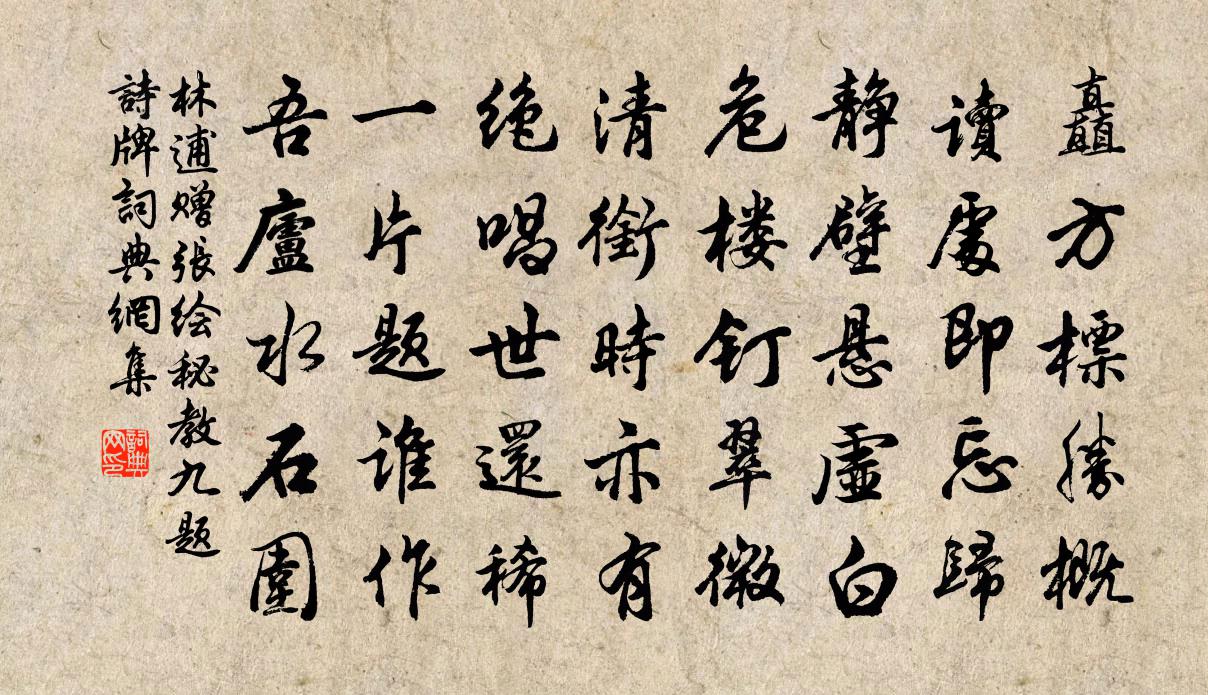 矗方標勝概
讀處即忘歸
静壁悬虚白
危楼釘翠微
清銜時亦有
绝唱世還稀
一片题谁作
吾廬水石圍
林逋赠張绘秘教九题
詩牌詞典網集
詞典网印